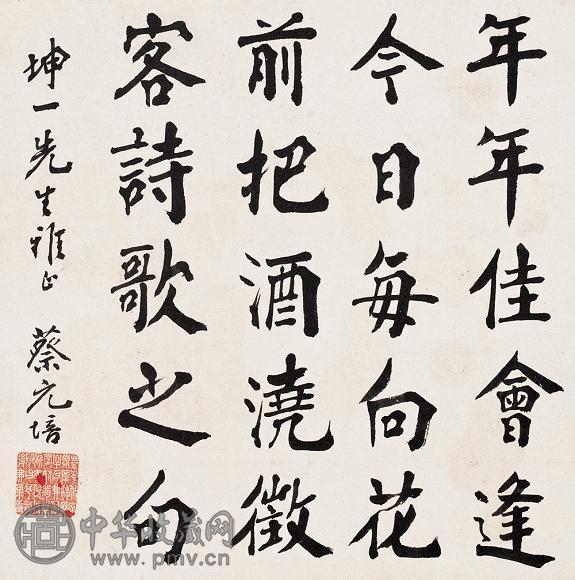 年年佳會逢
今日每向花
前把酒澆徵
客詩歌之句
坤一先生雅正 蔡元培
中华收藏网
www.pmv.cn